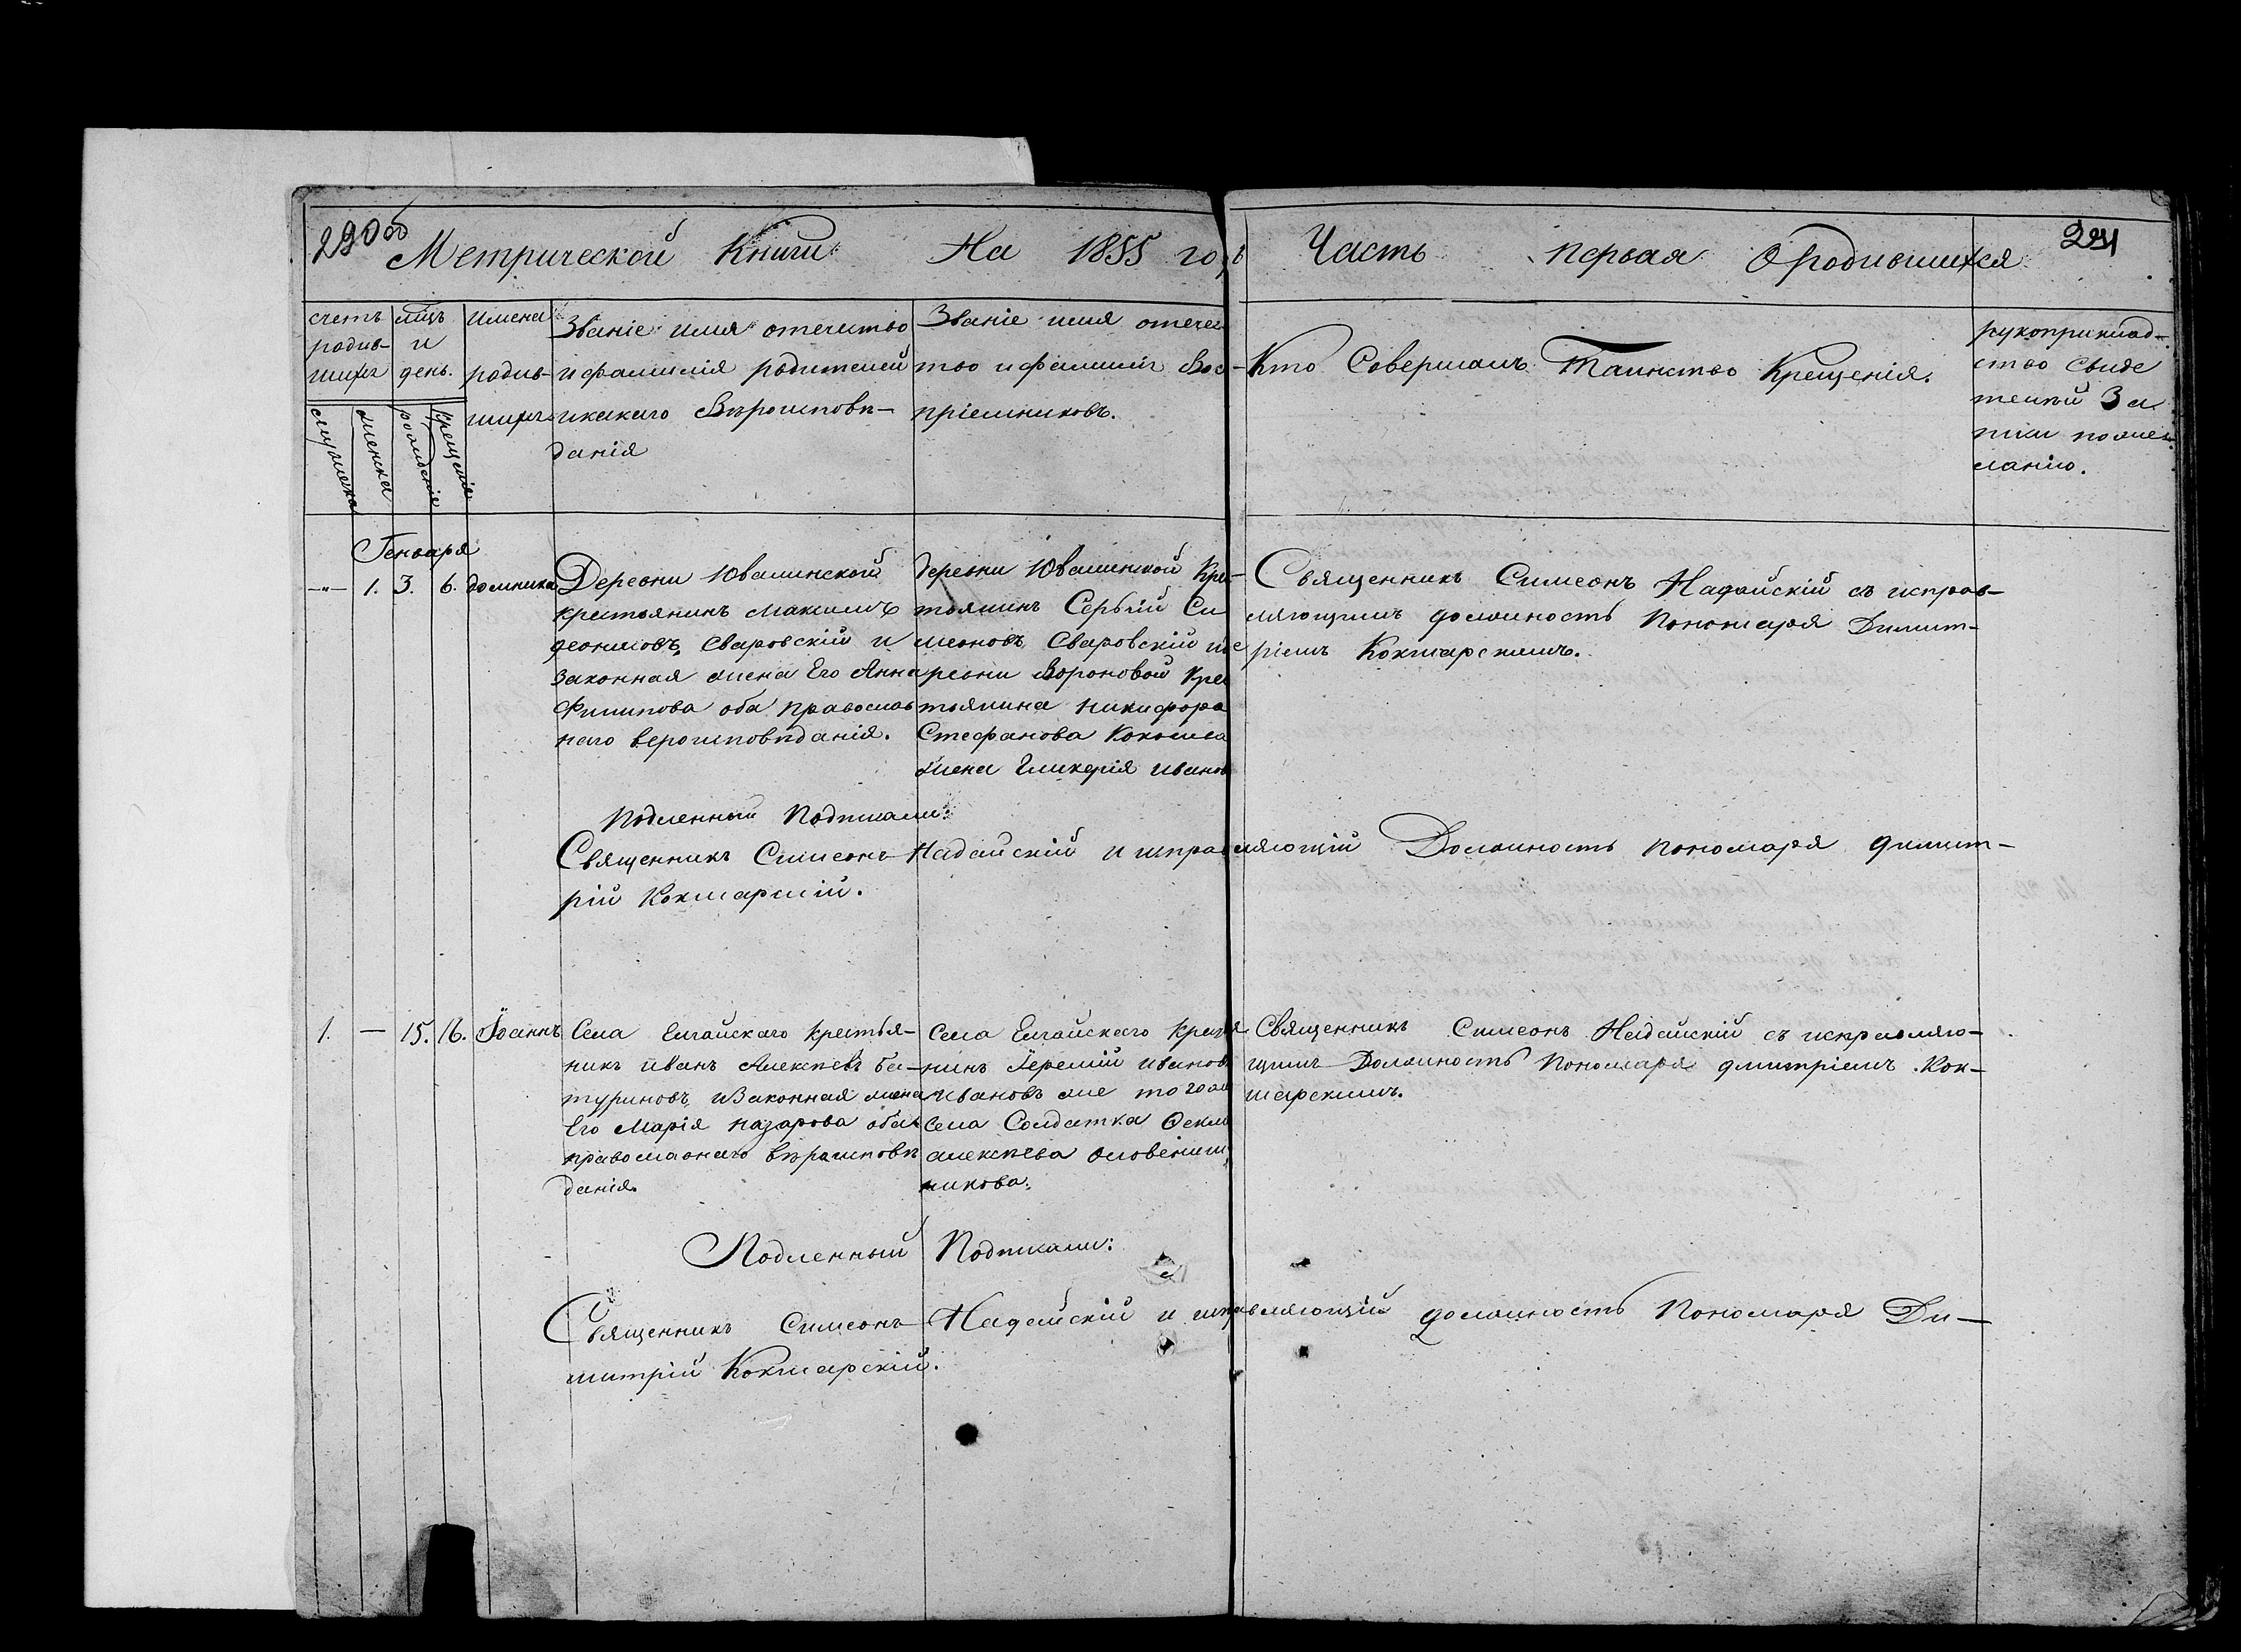 290об
Метрической Книги На 1855 годъ Часть первая О родившихся
счетъ родив- шихся
мужеска
женска
мсцъ и день.
рожденія
крещенія
имена родив- шихся
Званіе имя отечество
и фамилія родителей
и какаго Вѣроисповѣ-
данія
Званіе имя отечес
тво и фамилія Вос-
пріемниковъ.
Кто Совершалъ Таинство Крещенія.
рукоприклад-
ство Свиде
телей За
писи по же
ланію.
Генваря
—"— 1. 3. 6. домника
Деревни Ювалинской
крестьянинъ Максимъ
Сваровскій и
Законная жена Его Анна
Филипова оба православ
наго вероисповѣданія.
деревни Ювалинской Кре-
стьянинъ Сергій Си
меоновъ Сваровскій и де
ревни Вороновой Крес
тьянина никифора
Стефанова
жена Гликерія иванов
Священникъ Симеонъ Надайскій съ исправ-
ляющимъ должность Пономаря Димит-
ріемъ Кокшарскимъ.
Подленный Подписали:
Священникъ Симеонъ Надайскій и исправляющій Должность пономаря Димит-
рій Кокшарскій.
1. — 15. 16. Іоаннъ
Села Елгайскаго крестья-
нинъ иванъ Алексѣевъ ба-
туриновъ и Законная жена
Его Марія назарова оба
православнаго вѣроисповѣ
данія.
Села Елгайскаго Крестья
нинъ Іеремій иванов
ивановъ же того же
Села Солдатка Фекла
алексѣева
никова.
Священникъ Симеонъ Надайскій съ исправляю-
щимъ Должность Пономаря дмитріемъ Кок-
шарскимъ.
Подленный Подписали:
Священникъ Симеонъ Надайскій и исправляющій должность Пономаря Ди-
митрій Кокшарскій.